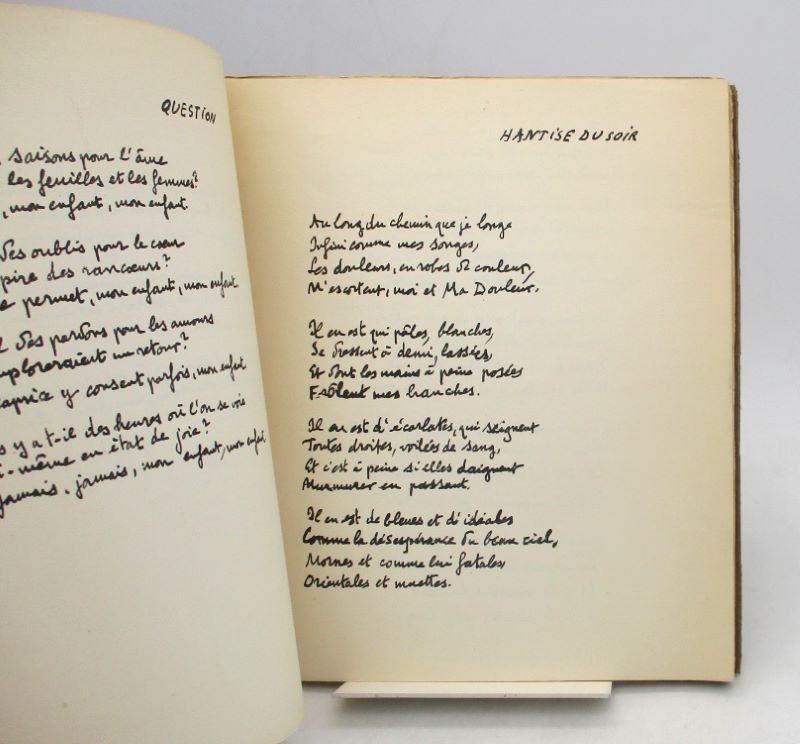 QUESTION
saisons pour l'âme
les feuilles et les femmes?
, mon enfant, mon enfant.
des oublis pour le cœur
pire des rancœurs?
permet, mon enfant, mon enfant
des pardons pour les amours
imploreraient un retour?
caprice y consent parfois, mon enfant
y a t-il des heures où l'on se voie
-même en état de joie?
Jamais, jamais, mon enfant, mon enfant
HANTISE DU SOIR
Au long du chemin que je longe
Infini comme mes songes,
Les douleurs, en robes de couleur,
M'escortent, moi et Ma Douleur,
Il en est qui pâles, blanches,
Se dressent à demi, lassées,
Et dont les mains à peine posées
Frôlent mes hanches.
Il en est d'écarlates, qui saignent
Toutes droites, voilées de sang,
Et c'est à peine si elles daignent
Murmurer en passant.
Il en est de bleues et d'idéales
Comme la désespérance du beau ciel,
Mornes et comme lui fatales,
Orientales et muettes.